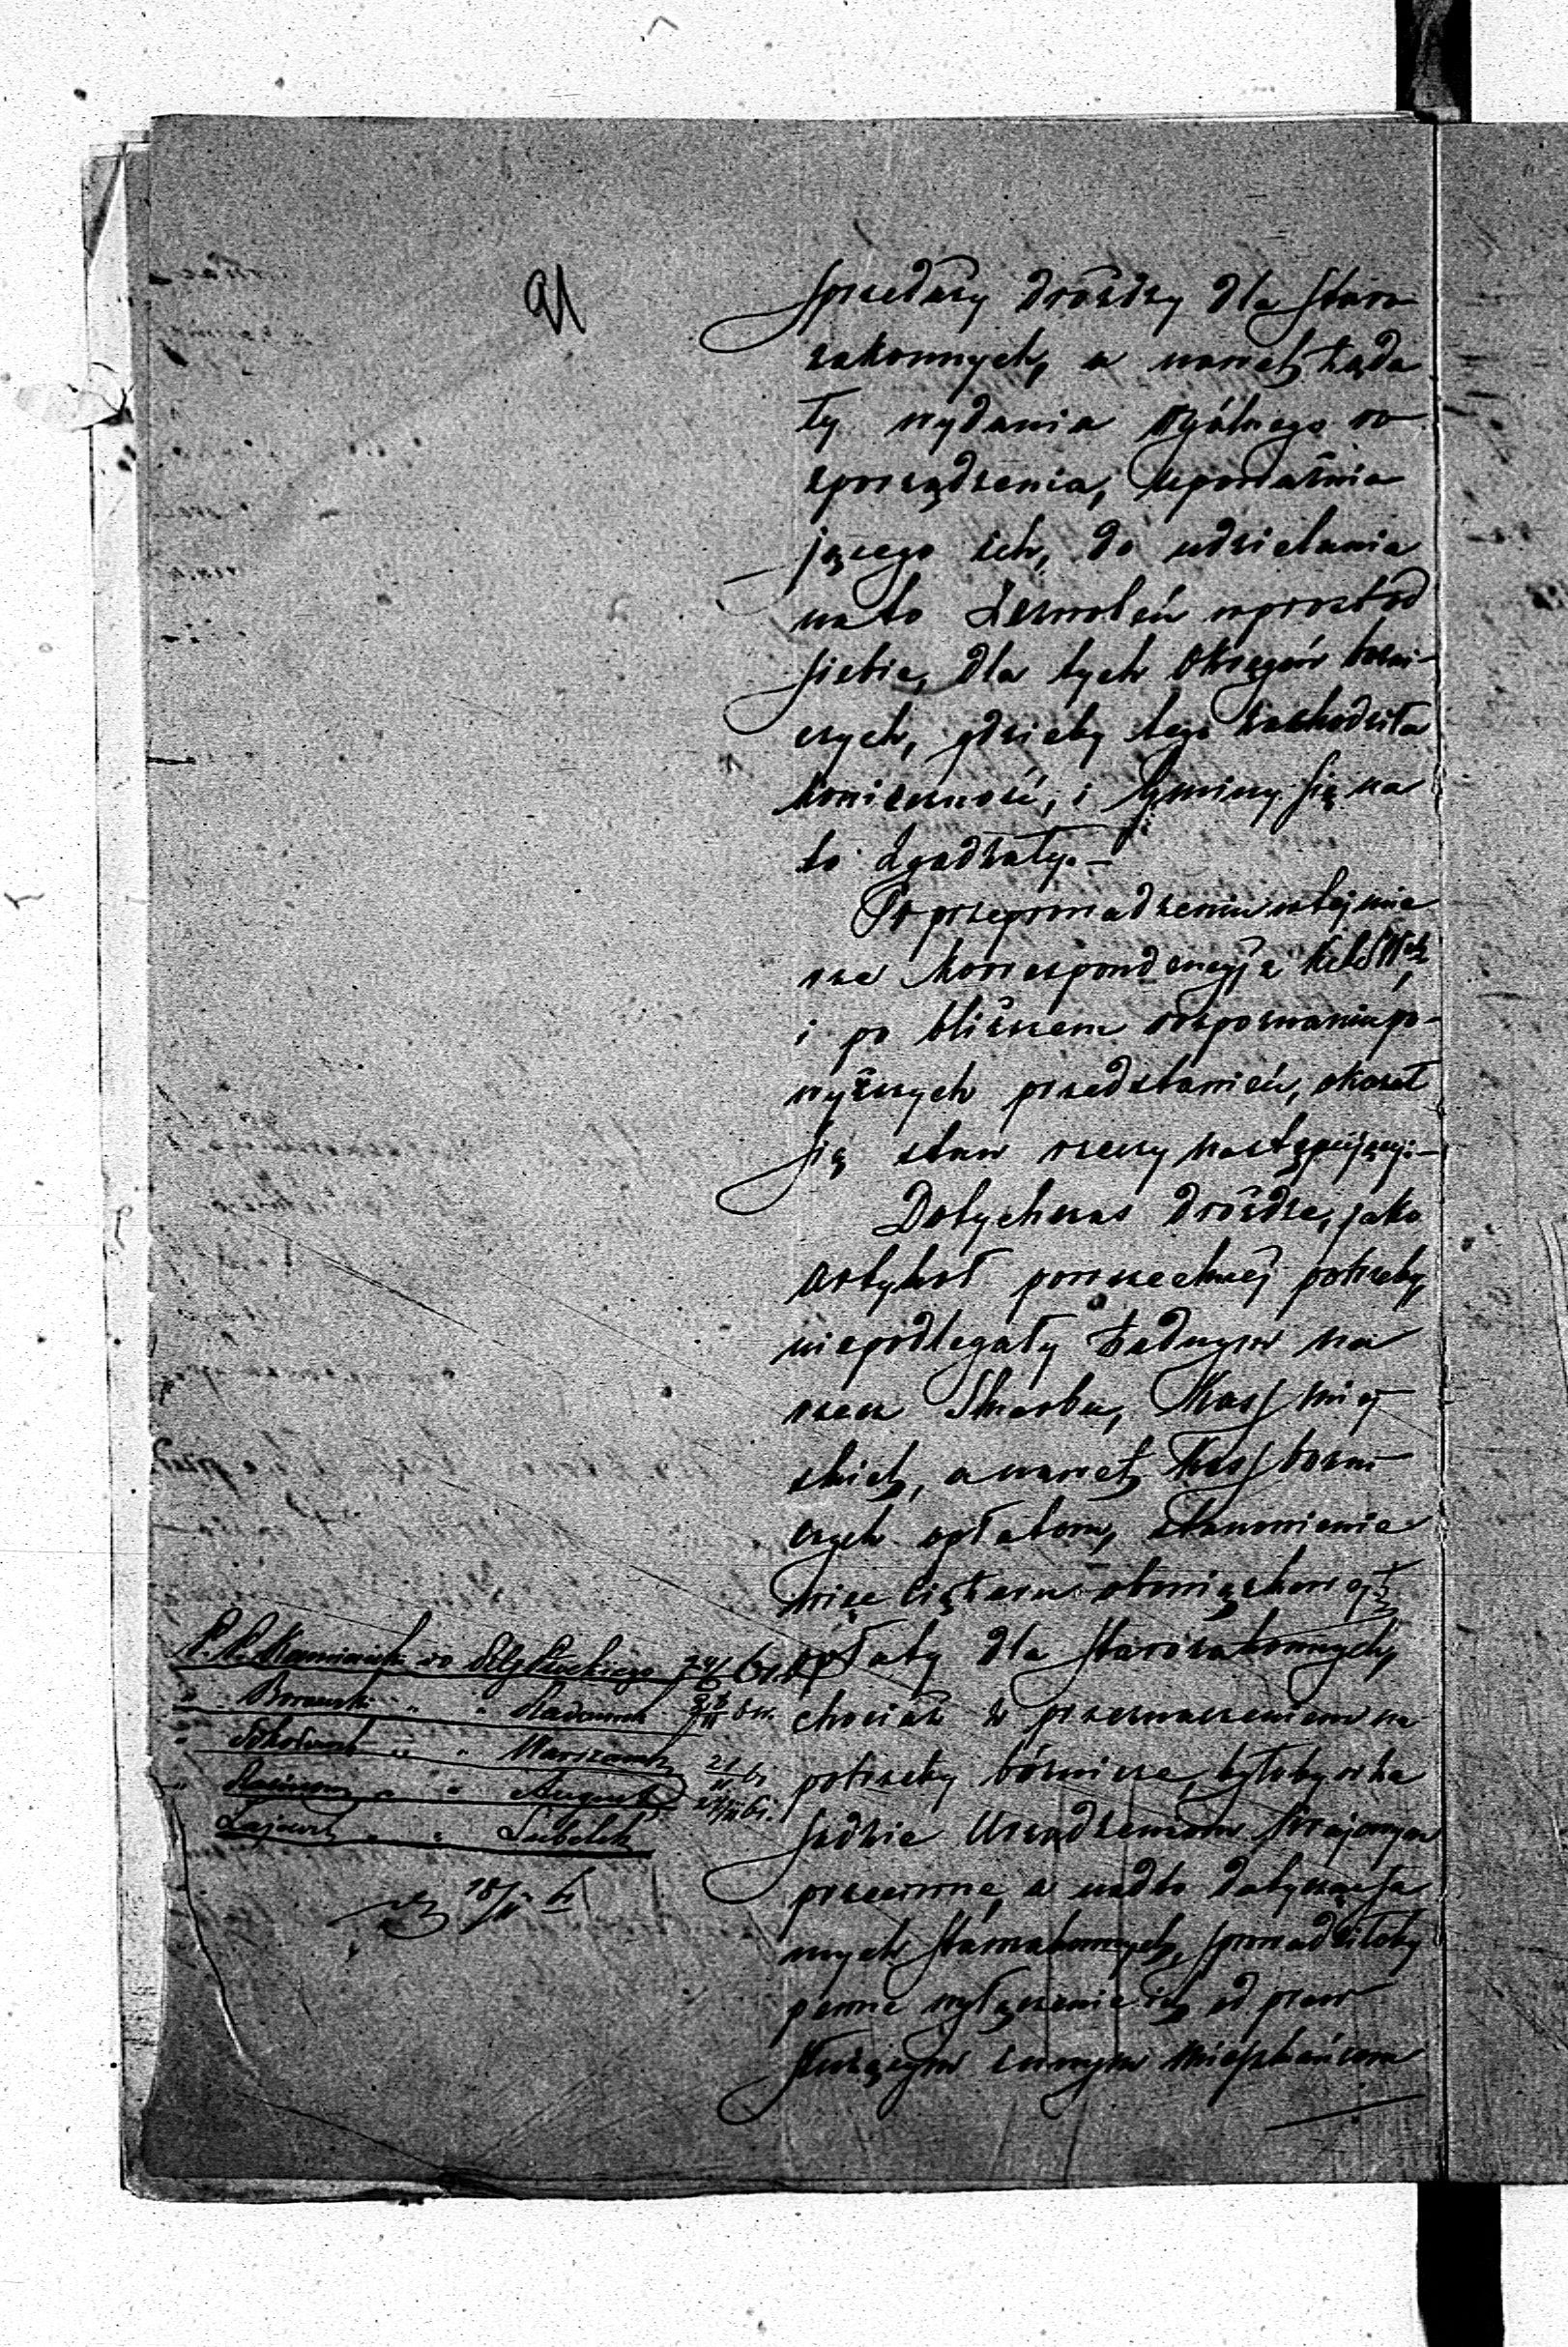 91
sprzedaży drożdży dla Staro
zakonnych, a nawet żąda
ły wydania ogólnego ro
zporządzenia, upoważnia
jącego ich, do udzielania
na to zezwoleń wprost od
siebie, dla tych Okręgów bożni-
czych, gdzieby tego zachodziła
konieczność, i Gminy się na
to zgadzały.—
Po przeprowadzeniu w tej mie
rze korrespondencyi z
i po bliższem rozpoznaniu po-
wyższych przedstawień, okazał
się stan rzeczy następujący:—
Dotychczas drożdże, jako
artykuł powszechnej potrzeby,
niepodlegały żadnym na
rzecz Skarbu, Kass miej
skich, a nawet Kass bożni
czych opłatom, stanowienie
więc ciężaru obowiązkowej
opłaty dla Starozakonnych,
chociaż z przeznaczeniem na
potrzeby bóżnicze, byłoby w za
sadzie Urządzeniom Krajowym
przeciwne, a nadto dotycząc sa
mych Starozakonnych, sprowadziłoby
pewne wyłączenie ich od praw
służących innym mieszkańcom
P. P. Kamiński do Płockiego
" " " Radomsk
" " " Warszawsk
" " " August
" " Lubelsk
18/II 61